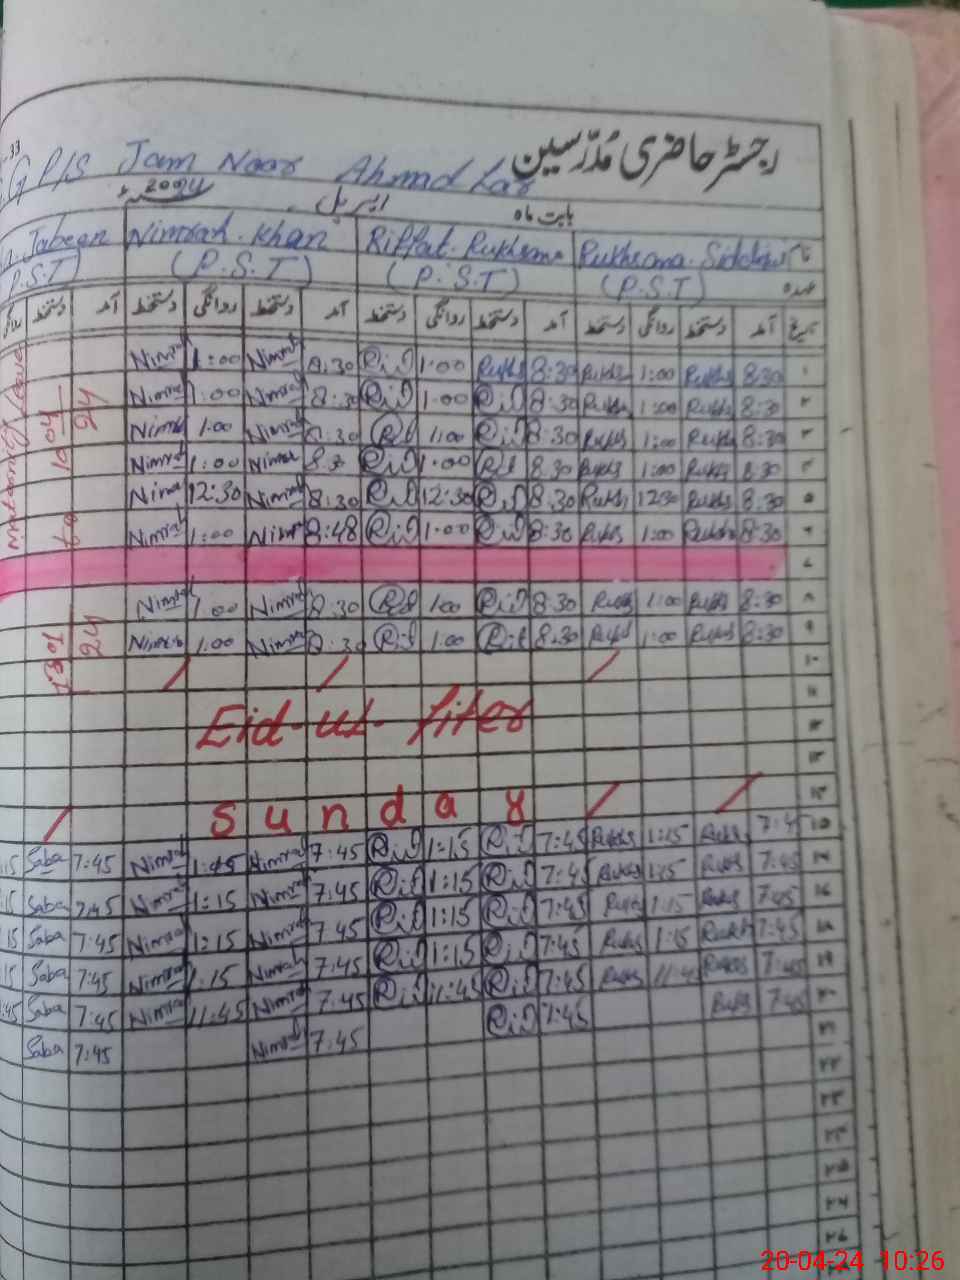 رجسٹر حاضری مُدرّسین
33
G P/S Jam Noor Ahmd Lar
بابت ماہ اپریل 2024
Jabeen Nimrah Khan Riffat Rukhsana Rukhsana نام
(P.S.T) (P.S.T) (P.S.T) عہدہ
P.S.T)
تاریخ آمد دستخط روانگی دستخط آمد دستخط روانگی دستخط آمد دستخط روانگی دستخط آمد دستخط
Nimrah 1:00 Nimrah 8:30 1:00 Rukhs 8:30 Rukhs 1:00 Rukhs 8:30 ۱
Nimrah 1:00 Nimrah 8:30 1:00 8:30 Rukhs 1:00 Rukhs 8:30 ۲
Nimra 1:00 Nimrah 8:30 1:00 8:30 Rukhs 1:00 Rukhs 8:30 ۳
Nimrah 1:00 Nimra 8:30 1:00 8:30 Rukhs 1:00 Rukhs 8:30 ۴
Nimra 12:30 Nimrah 8:30 12:30 8:30 Rukhs 12:30 Rukhs 8:30 ۵
Nimrah 1:00 Nimr 8:48 1:00 8:30 Rukhs 1:00 Rukhs 8:30 ۶
۷
Nimrah 1:00 Nimrah 8:30 1:00 8:30 Rukhs 1:00 Rukhs 8:30 ۸
Nimra 1:00 Nimrah 8:30 1:00 8:30 Rukhs 1:00 Rukhs 8:30 ۹
۱۰
۱۱
Eid-ul-fiter
۱۲
۱۳
Sunday ۱۴
:15 Saba 7:45 Nimrah 1:45 Nimrah 7:45 1:15 7:45 Rukhs 1:15 Rukhs 7:45 ۱۵
:15 Saba 7:45 Nimrah 1:15 Nimrah 7:45 1:15 7:45 Rukhs 1:15 Rukhs 7:45 ۱۶
:15 Saba 7:45 Nimrah 1:15 Nimrah 7:45 1:15 7:45 Rukhs 1:15 Rukhs 7:45 ۱۷
:15 Saba 7:45 Nimrah 1:15 Nimrah 7:45 1:15 7:45 Rukhs 1:15 Rukhs 7:45 ۱۸
:45 Saba 7:45 Nimrah 11:45 Nimrah 7:45 11:45 7:45 Rukhs 11:45 Rukhs 7:45 ۱۹
Saba 7:45 Nimrah 7:45 7:45 Rukhs 7:45 ۲۰
۲۱
۲۲
۲۳
۲۴
۲۵
۲۶
۲۷
20-04-24 10:26